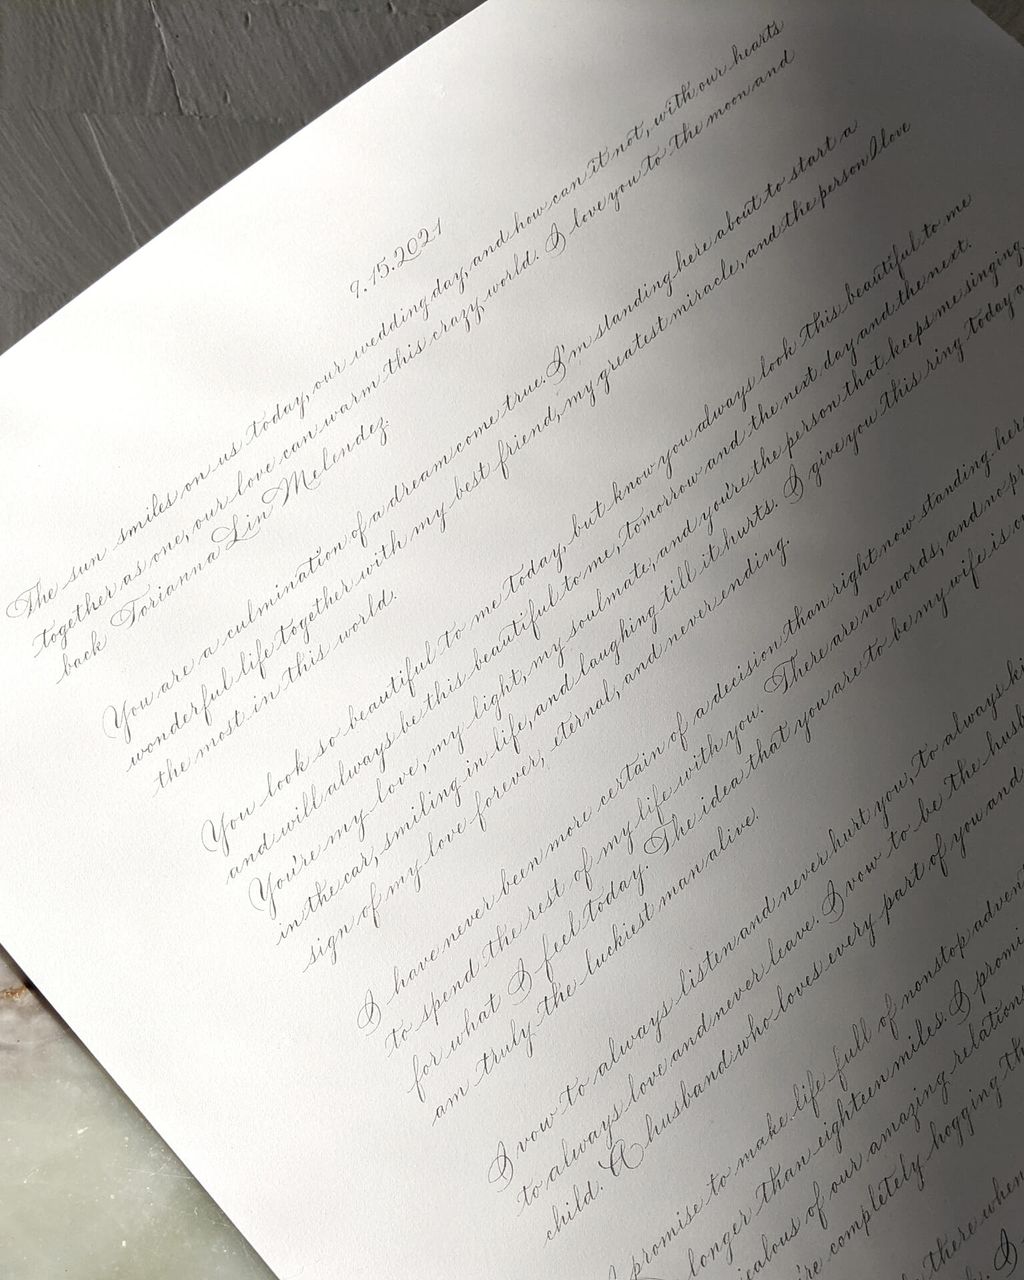 9.15.2021
The sun smiles on us today, our wedding day, and how can it not, with our hearts
together as one, our love can warm this crazy world. I love you to the moon and
back Torianna Lin Melendez.
You are a culmination of a dream come true. I'm standing here about to start a
wonderful life together with my best friend, my greatest miracle, and the person I love
the most in this world.
You look so beautiful to me today, but know you always look this beautiful to me
and will always be this beautiful to me, tomorrow and the next day and the next.
You're my love, my light, my soulmate, and you're the person that keeps me singing
in the car, smiling in life, and laughing till it hurts. I give you this ring today a
sign of my love forever, eternal, and never ending.
I have never been more certain of a decision than right now standing her
to spend the rest of my life with you. There are no words, and no
for what I feel today. The idea that you are to be my wife is
am truly the luckiest man alive.
I vow to always listen and never hurt you, to always
to always love and never leave. I vow to be the
child. A husband who loves every part of you and
promise to make life full of nonstop
longer than eighteen miles. I
of our amazing
completely hogging
there when